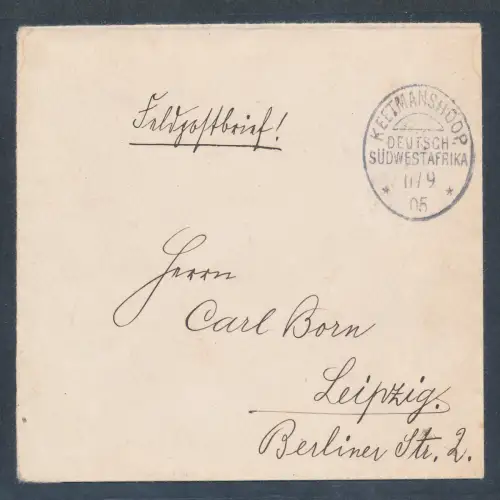 Feldpostbrief!
KEETMANSHOOP
DEUTSCH-
SÜDWESTAFRIKA
* 11/9 *
05
Herrn
Carl Born
Leipzig.
Berliner Str. 2.